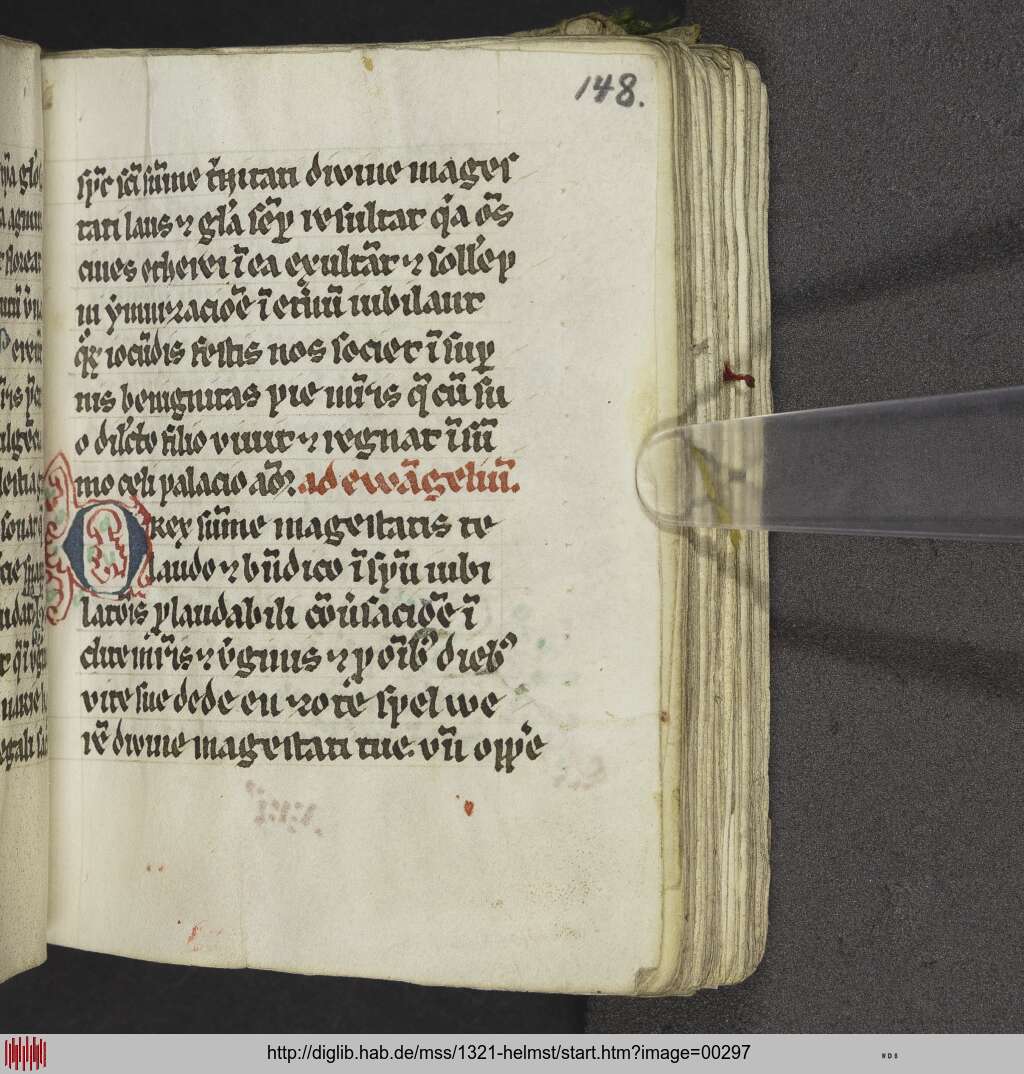 148.
sp̄c sc̄i sūme t̄nitati divine mages
tati laus ⁊ gl̓a sēp̱ resultat q̓a ōs
cives etherei ī ea exultāt ⁊ solle̓p
ni ẏmnizaciōe ī et̓nū iubilant
iocūdis festis nos societ ī sup̱
nis benignitas pie mr̄is q̄ cū su
o dil̓cto filio vivit ⁊ regnat ī sū
mo celi palacio am̄ ad ewāgeliū.
O Rex sūme magestatis te
laudo ⁊ bn̄dico ī sp̄u iubi
latōis p̱laudabili cōv̓saciōe ī
clite mr̄is ⁊ v̓ginis ⁊ p̱ ōib⁹ dieb⁹
vite sue dede en
divine magestati tue. vn̄
http://diglib.hab.de/mss/1321-helmst/start.htm?image=00297